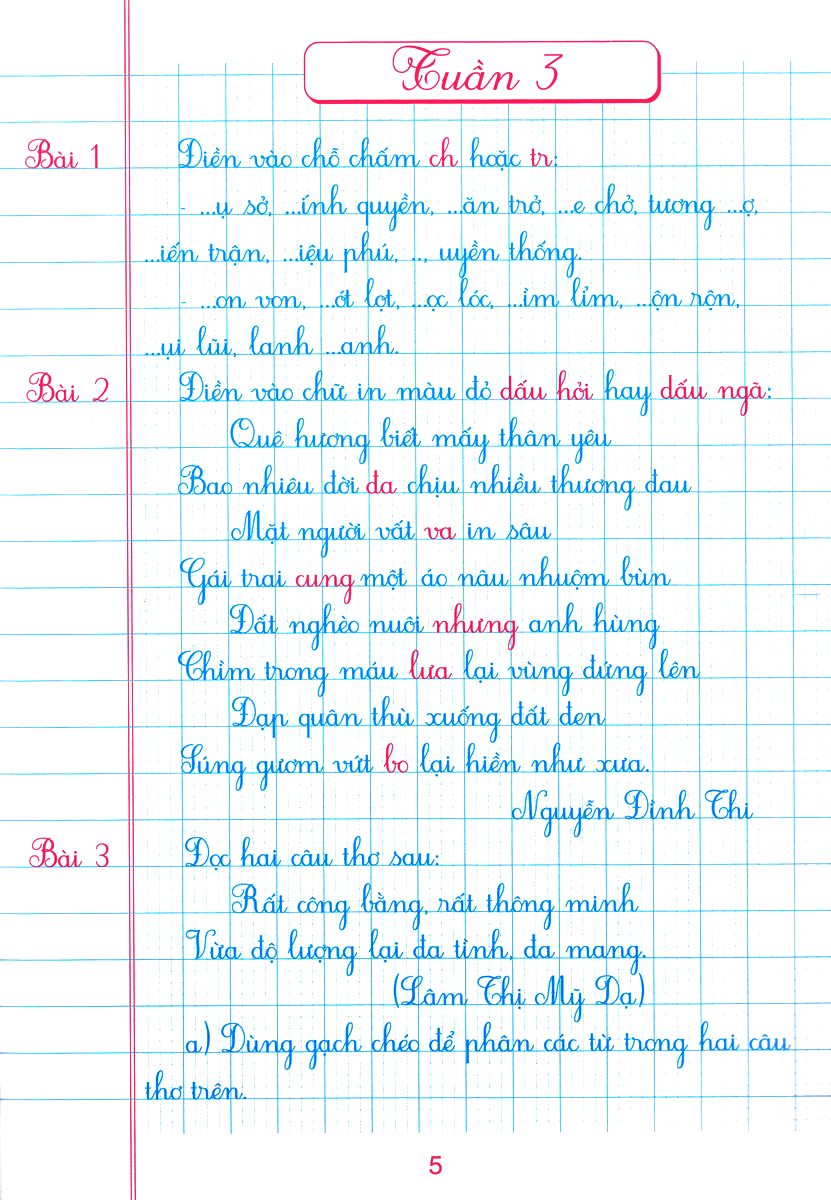 Tuần 3
Bài 1 Điền vào chỗ chấm ch hoặc tr:
- ...ụ sở, ...ính quyền, ...ăn trở, ...e chở, tương ...ợ,
...iến trận, ...iệu phú, .., uyền thống.
- ...on von, ...ót lọt, ...ọc lóc, ...ỉm lỉm, ...ộn rộn,
...ụi lũi, lanh ...anh.
Bài 2 Điền vào chữ in màu đỏ dấu hỏi hay dấu ngã:
Quê hương biết mấy thân yêu
Bao nhiêu đời đa chịu nhiều thương đau
Mặt người vất va in sâu
Gái trai cung một áo nâu nhuộm bùn
Đất nghèo nuôi nhưng anh hùng
Chìm trong máu lưa lại vùng đứng lên
Đạp quân thù xuống đất đen
Súng gươm vứt bo lại hiền như xưa.
Nguyễn Đình Thi
Bài 3 Đọc hai câu thơ sau:
Rất công bằng, rất thông minh
Vừa độ lượng lại đa tình, đa mang.
(Lâm Thị Mỹ Dạ)
a) Dùng gạch chéo để phân các từ trong hai câu
thơ trên.
5